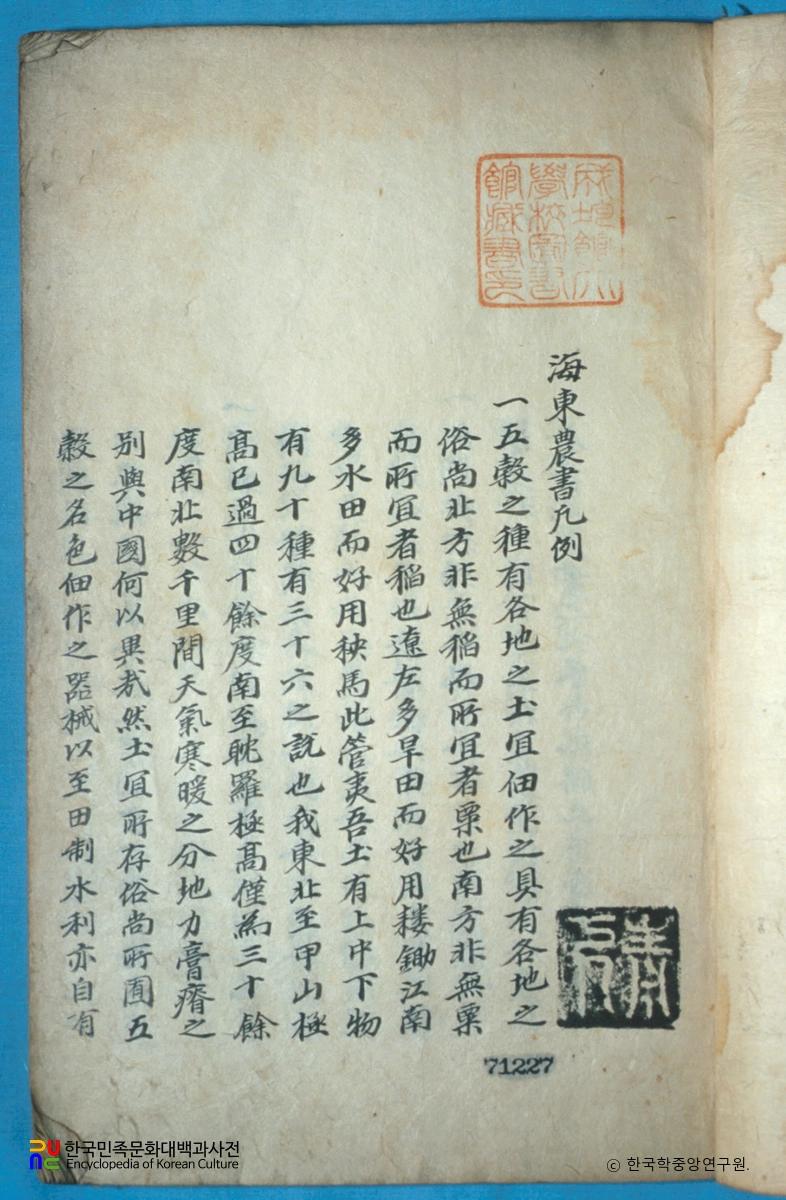 海東農書凡例
一五穀之種有各地之土宜佃作之具有各地之
俗尚北方非無稻而所宜者粟也南方非無粟
而所宜者稻也遼左多旱田而好用耬鋤江南
多水田而好用秧馬此管夷吾土有上中下物
有九十種有三十六之說也我東北至甲山極
高已過四十餘度南至耽羅極高僅爲三十餘
度南北數千里間天氣寒暖之分地力膏瘠之
別與中國何以異哉然土宜所存俗尚所囿五
穀之名色佃作之器械以至田制水利亦自有
學校圖書
館藏書印
71227
한국민족문화대백과사전
Encyclopedia of Korean Culture
© 한국학중앙연구원.